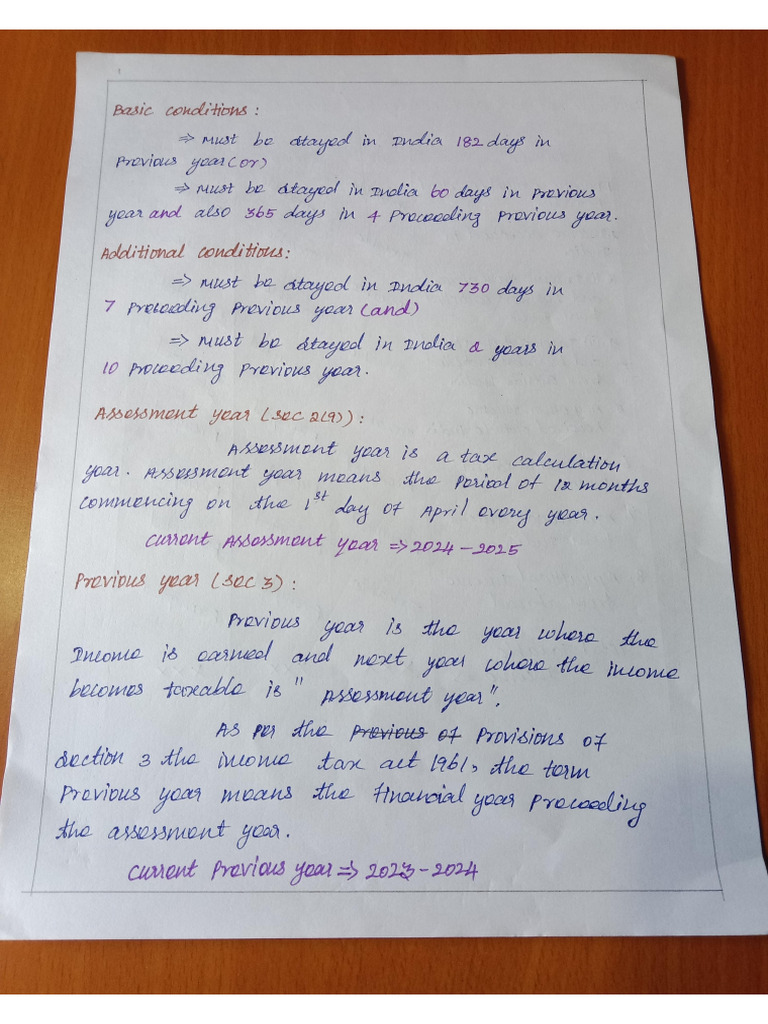 Basic conditions :
⇒ Must be stayed in India 182 days in
Previous year (or)
⇒ Must be stayed in India 60 days in Previous
year and also 365 days in 4 Preceeding Previous year.
Additional conditions:
⇒ Must be stayed in India 730 days in
7 Preceeding Previous year (and)
⇒ Must be stayed in India 2 years in
10 Preceeding Previous year.
Assessment year (sec 2(9)) :
Assessment year is a tax calculation
year. Assessment year means the Period of 12 months
commencing on the 1st day of April every year.
Current Assessment year ⇒ 2024 - 2025
Previous year (sec 3) :
Previous year is the year where the
Income is earned and next year where the income
becomes taxeable is " Assessment year".
As per the Previous of Provisions of
section 3 the income tax act 1961, the term
Previous year means the financial year preceeding
the assessment year.
Current Previous year ⇒ 2023 - 2024